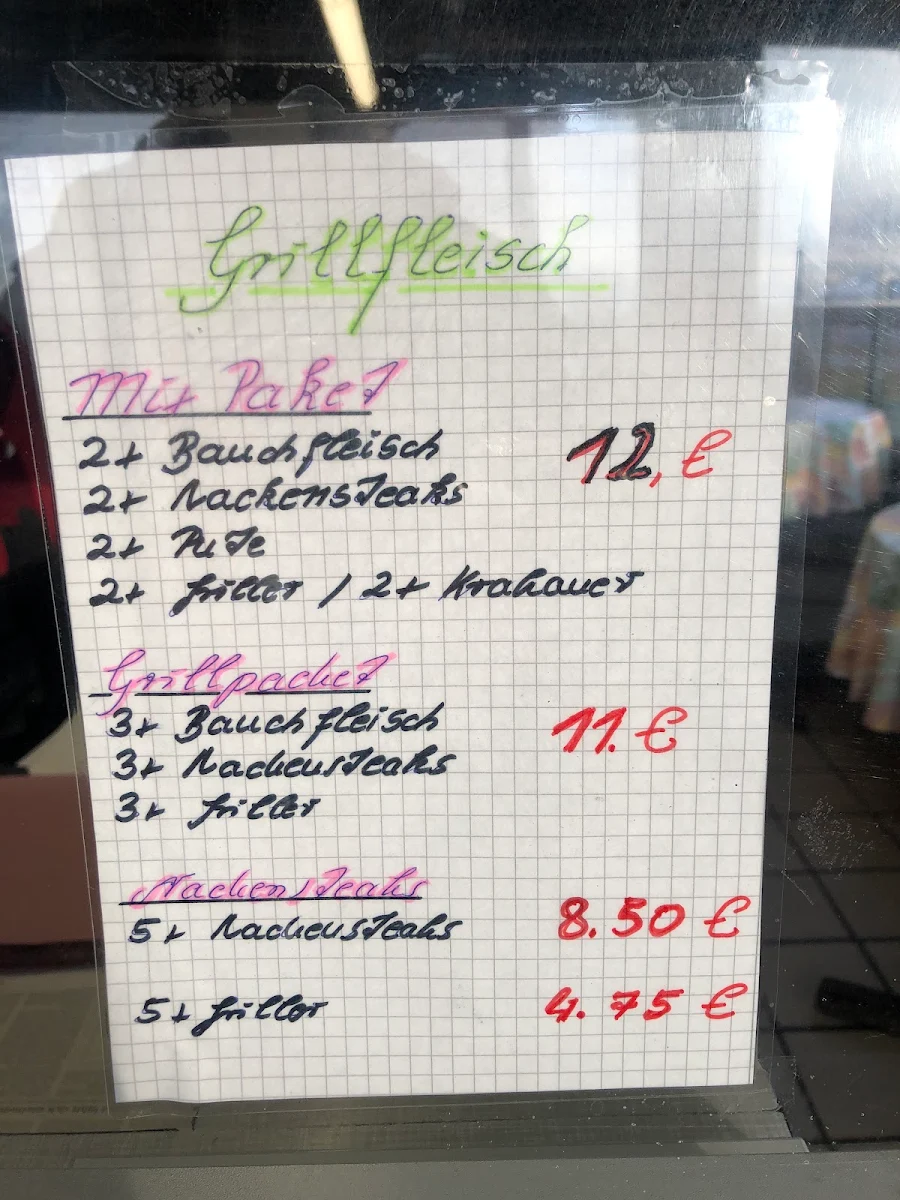 Grillfleisch
Mix Paket
2x Bauchfleisch 12,€
2x Nackensteaks
2x Pute
2x Griller / 2x Krakauer
Grillpacket
3x Bauchfleisch 11.€
3x Nackensteaks
3x Griller
Nackensteaks
5x Nackensteaks 8.50 €
5x Griller 4.75 €